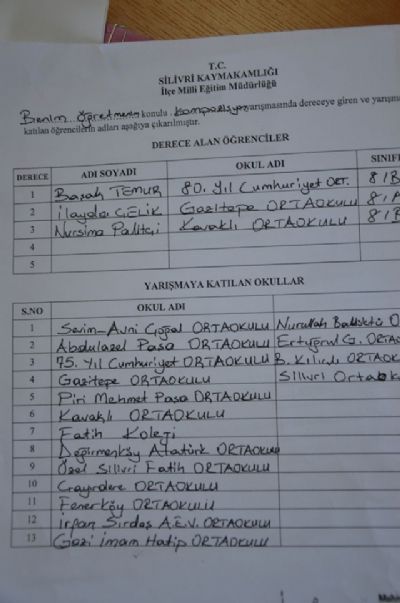 T.C.
SİLİVRİ KAYMAKAMLIĞI
İlçe Milli Eğitim Müdürlüğü
Benim Öğretmenim konulu kompozisyon yarışmasında dereceye giren ve yarışma
katılan öğrencilerin adları aşağıya çıkarılmıştır.
DERECE ALAN ÖĞRENCİLER
DERECE ADI SOYADI OKUL ADI SINIF
1 Başak TEMUR 80. Yıl Cumhuriyet ORT. 8/B
2 İlayda ÇELİK Gazitepe ORTAOKULU 8/A
3 Nursima Kavaklı ORTAOKULU 8/B
4
5
YARIŞMAYA KATILAN OKULLAR
S.NO OKUL ADI
1 Sevim-Avni ORTAOKULU Nurullah O
2 Abdulazel Paşa ORTAOKULU Ertuğrul G. ORTA
3 75. Yıl Cumhuriyet ORTAOKULU B. Kılıçlı ORTAOK
4 Gazitepe ORTAOKULU Silivri Ortaok
5 Piri Mehmet Paşa ORTAOKULU
6 Kavaklı ORTAOKULU
7 Fatih Koleji
8 Değirmenköy Atatürk ORTAOKULU
9 Özel Silivri Fatih ORTAOKULU
10 Çayırdere ORTAOKULU
11 Fenerköy ORTAOKULU
12 İrfan Sırdaş A.E.V. ORTAOKULU
13 Gazi İmam Hatip ORTAOKULU